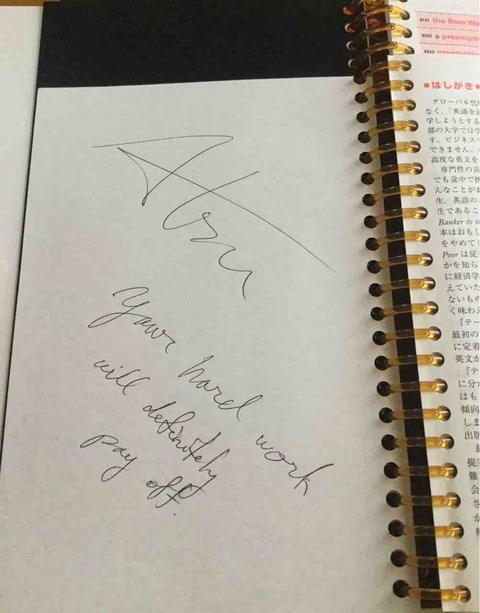 Your hard work
will definitely
pay off!
on the Boer Wa
on a preemptio
■はしがき■
グローバル化
なく、「英語を
学しようとする
部の大学では学
す。ビジネス
できません。
高度な英文を
専門性の高
でも途中で
んなことが
生、英語の
生であるこ
Banker to t
本はおもし
をやめて
Poor は従
かを知ら
に経済学
えていた
ないもの
く味わえ
『テー
最初の
に定着
英文が
『テ
に分
はも
傾向
しま
出版
提案
難
会
さ
か